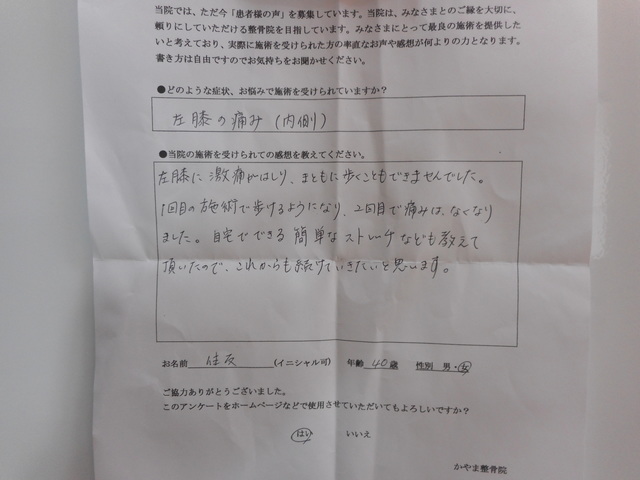 当院では、ただ今「患者様の声」を募集しています。当院は、みなさまとのご縁を大切に、
頼りにしていただける整骨院を目指しています。みなさまにとって最良の施術を提供した
いと考えており、実際に施術を受けられた方の率直なお声や感想が何よりの力となります。
書き方は自由ですのでお気持ちをお聞かせください。
●どのような症状、お悩みで施術を受けられていますか?
左膝の痛み(内側)
●当院の施術を受けられての感想を教えてください。
左膝に激痛がはしり、まともに歩くこともできませんでした。
1回目の施術で歩けるようになり、2回目で痛みは、なくなり
ました。自宅でできる簡単なストレッチなども教えて
頂いたので、これからも続けていきたいと思います。
お名前 (イニシャル可) 年齢 40歳 性別 男・女
ご協力ありがとうございました。
このアンケートをホームページなどで使用させていただいてもよろしいですか?
はい いいえ
かやま整骨院